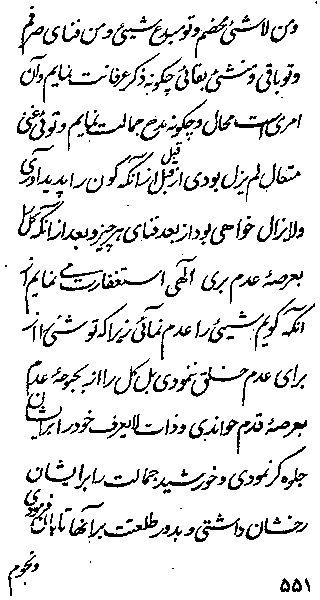 و من لاشئ محضم و تو مبدع شیئی و من فنای صرفم
و تو باقی و منشئ بقائی چگونه ذکر عرفانت نمایم و آن
امری است محال و چگونه مدح جمالت نمایم و توئی غنی
متعال لم یزل بودی از قبل قبل از آنکه کون را پدید آوری
و لا زال خواهی بود از بعد فنای هر چیز و بعد از آنکه کل را
بعرصهٔ عدم بری الهی استغفارت می نمایم از
آنکه گویم شیئی را عدم نمائی زیرا که تو شئ را از
برای عدم خلق ننمودی بل کل را از بحبوحهٔ عدم
بعرصهٔ قدم خواندی و ذات لا یعرف خود را بر ایشان
جلوه گر نمودی و خورشید جمالت را بر ایشان
رخشان داشتی و بدور طلعتت بر آنها تابان فرمودی
و نجوم
۵۵۱